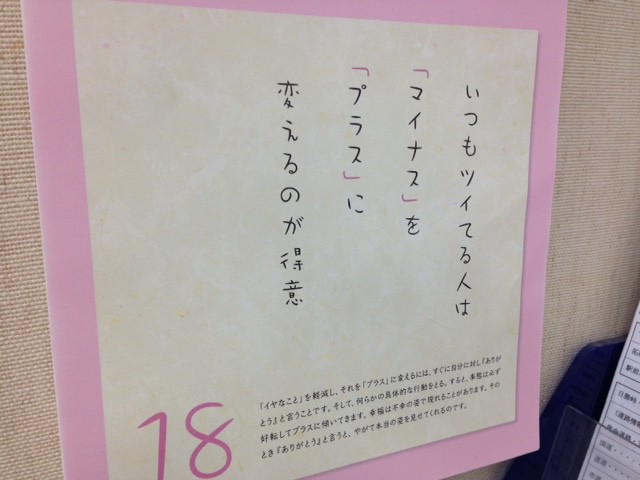 いつもツイてる人は
「マイナス」を
「プラス」に
変えるのが得意
「イヤなこと」を軽減し、それを「プラス」に変えるには、すぐに自分に対し『ありが
とう』と言うことです。そして、何らかの具体的な行動をとる。すると、事態は必ず
好転してプラスに傾いてきます。幸福は不幸の姿で現れることがあります。その
とき『ありがとう』と言うと、やがて本当の姿を見せてくれるのです。
18